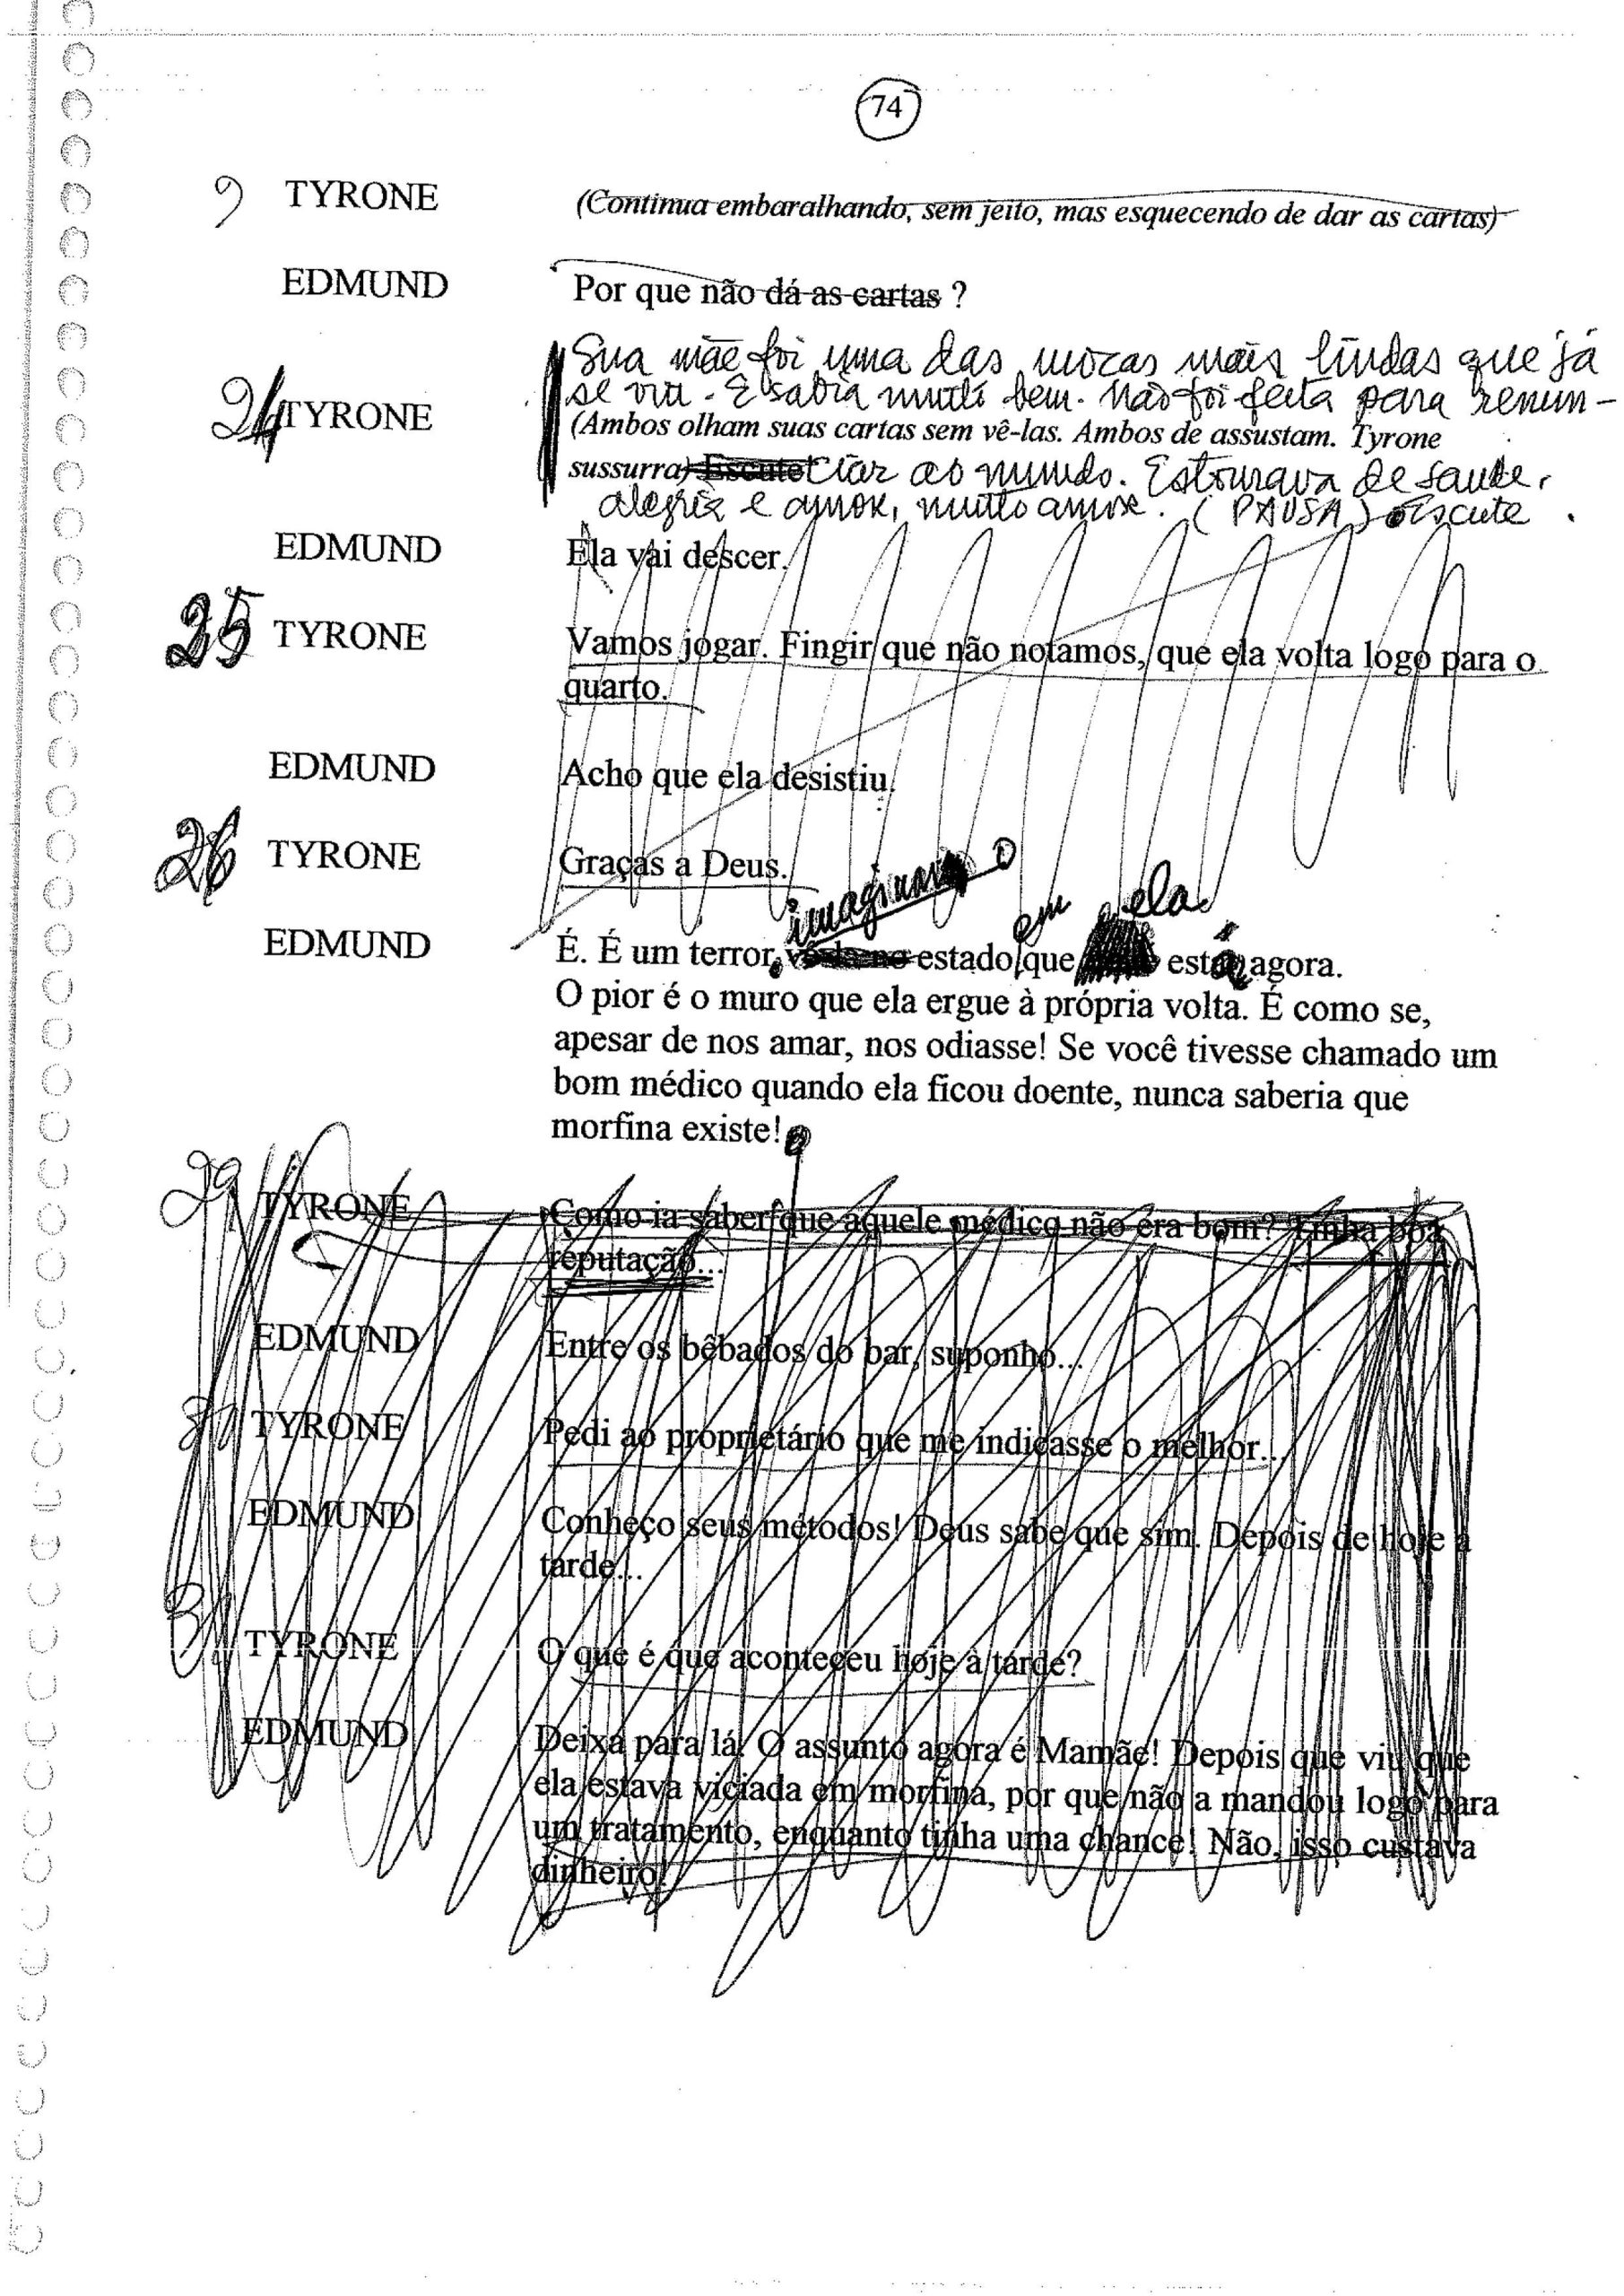 74
9 TYRONE (Continua embaralhando, sem jeito, mas esquecendo de dar as cartas)
EDMUND Por que não dá as cartas ?
Sua mãe foi uma das moças mais lindas que já
se viu. E sabia muito bem. Não foi feita para renun-
24 TYRONE (Ambos olham suas cartas sem vê-las. Ambos de assustam. Tyrone
sussurra) Escute! ciar ao mundo. Estourava de saude,
alegria e amor, muito amor. (PAUSA) Escute.
EDMUND Ela vai descer.
25 TYRONE Vamos jogar. Fingir que não notamos, que ela volta logo para o
quarto.
EDMUND Acho que ela desistiu.
26 TYRONE Graças a Deus.
imaginar o
em ela
EDMUND É. É um terror, estado que está agora.
O pior é o muro que ela ergue à própria volta. É como se,
apesar de nos amar, nos odiasse! Se você tivesse chamado um
bom médico quando ela ficou doente, nunca saberia que
morfina existe!
29 TYRONE Como ia saber que aquele médico não era bom? Tinha boa
reputação...
EDMUND Entre os bêbados do bar, suponho...
TYRONE Pedi ao proprietário que me indicasse o melhor...
EDMUND Conheço seus métodos! Deus sabe que sim. Depois de hoje à
tarde...
TYRONE O que é que aconteceu hoje à tarde?
EDMUND Deixa para lá! O assunto agora é Mamãe! Depois que viu que
ela estava viciada em morfina, por que não a mandou logo para
um tratamento, enquanto tinha uma chance! Não, isso custava
dinheiro!